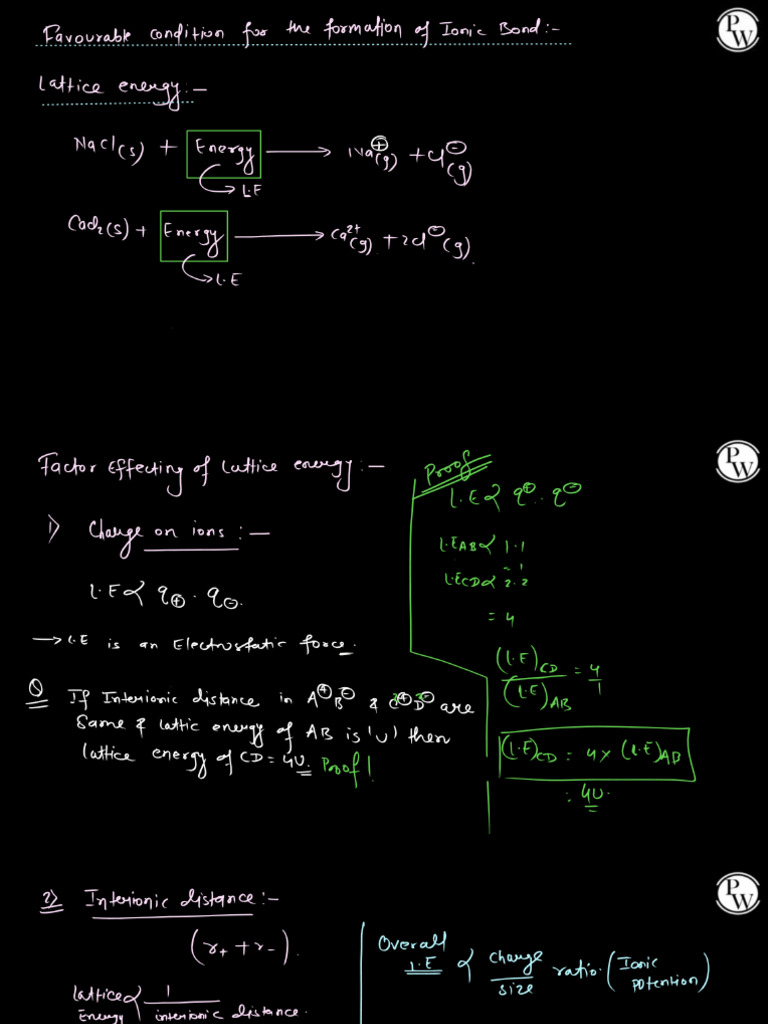 Favourable condition for the formation of Ionic Bond:-
PW
Lattice energy:-
NaCl(s) + Energy ⟶ Na⊕(g) + Cl⊖(g)
L.E
CaCl₂(s) + Energy ⟶ Ca²⁺(g) + 2Cl⊖(g)
L.E
PW
Factor Effecting of Lattice energy:-
1) Charge on ions:-
L.E ∝ q⊕ . q⊖.
→ L.E is an Electrostatic force.
Q If Interionic distance in A⊕B⊖ & C²⊕D²⊖ are
Same & lattic energy of AB is 'U' then
lattice energy of CD = 4U. Proof!
Proof
L.E ∝ q⊕ . q⊖
L.E AB ∝ 1.1
= 1
L.E CD ∝ 2.2
= 4
(L.E)CD / (L.E)AB = 4/1
(L.E)CD = 4 × (L.E)AB
= 4U.
PW
2) Interionic distance:-
(r₊ + r₋).
Lattice Energy ∝ 1 / interionic distance.
Overall L.E ∝ charge / size ratio. (Ionic potention)